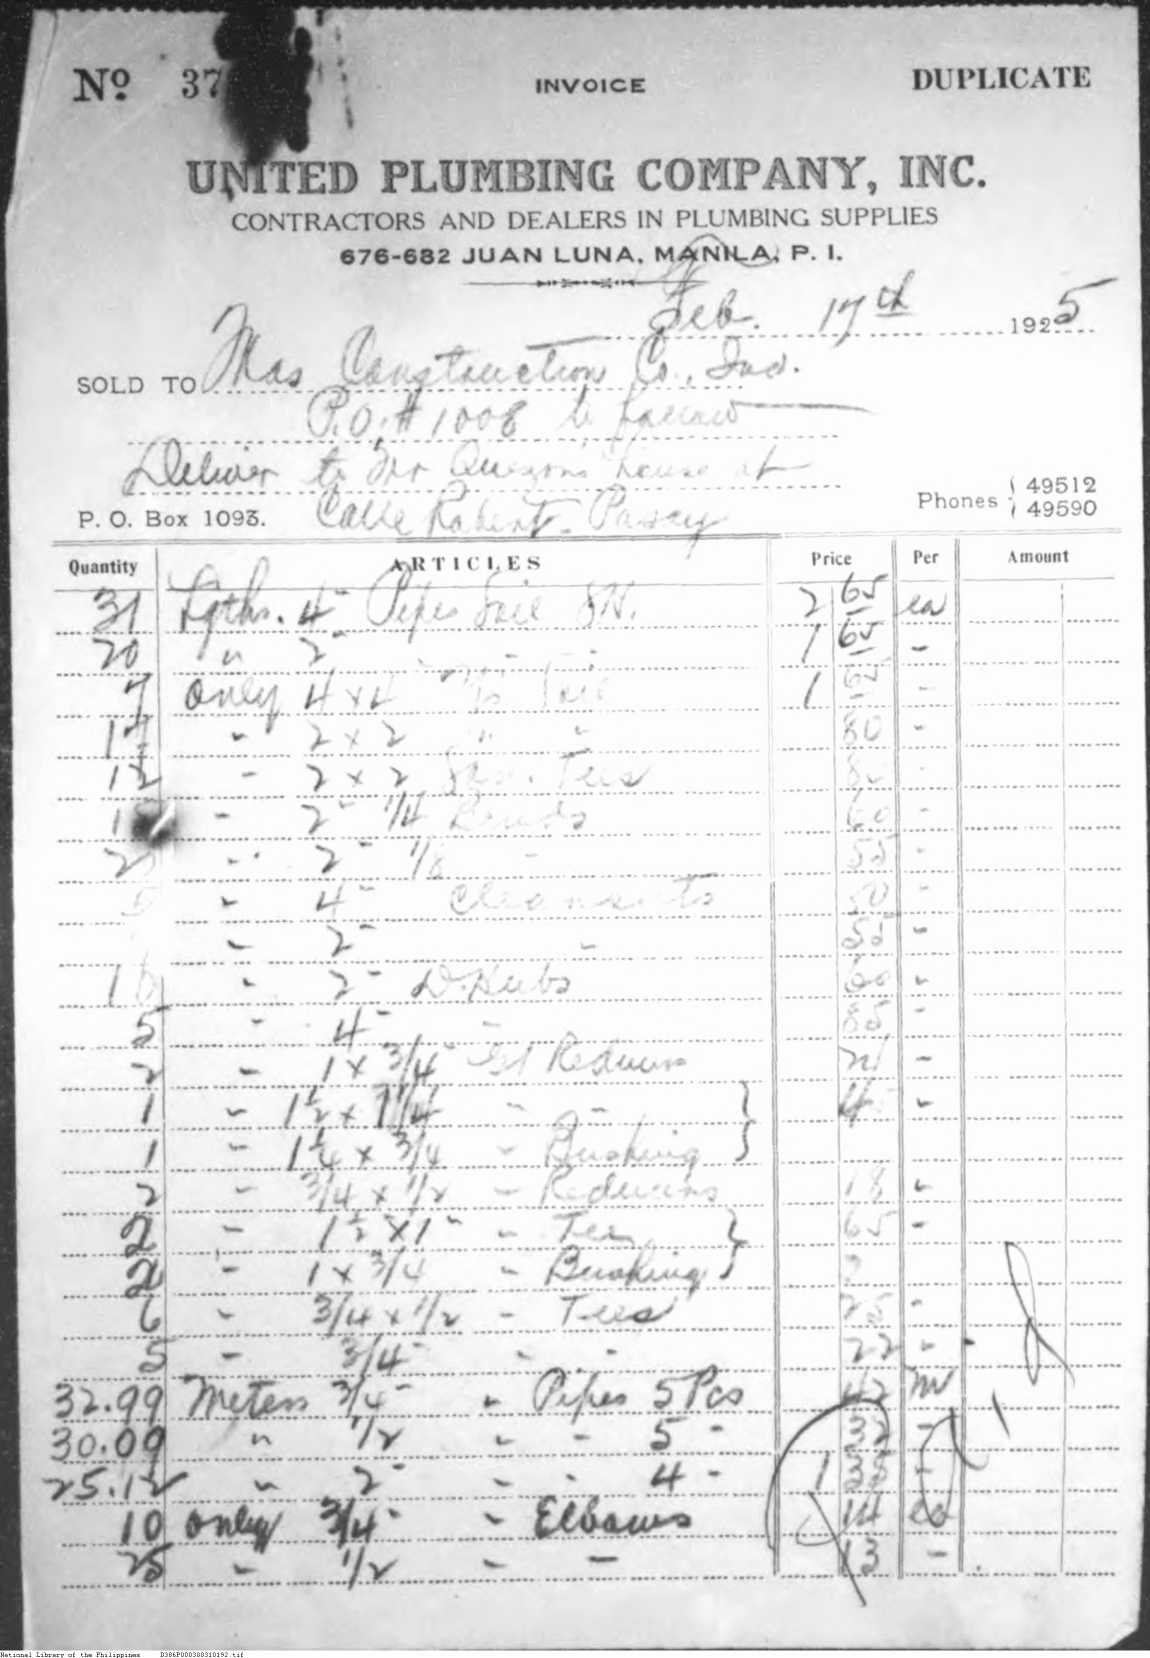 No 37
INVOICE
DUPLICATE
UNITED PLUMBING COMPANY, INC.
CONTRACTORS AND DEALERS IN PLUMBING SUPPLIES
676-682 JUAN LUNA, MANILA, P. I.
Feb. 17th 1925
SOLD TO Mas Construction Co., Inc.
P.O. # 1008 to follow
Deliver to Mr Quezon's house at
P. O. Box 1093. Calle Robert - Pasay
Phones 49512
49590
Quantity ARTICLES Price Per Amount
31 Lgths. 4" Pipes Soil SH. 2 65 ea
20 " 2" " " " 1 65 "
7 only 4 x 4 Soil 1 65 "
17 " 2 x 2 " " 80 "
12 " 2 x 2 San. Tees 80 "
" 2" 1/4 Bends 60 "
" 2" 1/8 " 55 "
" 4" Cleanouts 50 "
" 2" " 55 "
" 2" D. Hubs 60 "
5 " 4" " 85 "
2 " 1 x 3/4" Reducers "
1 " 1 1/2 x 1 1/4 " " } "
1 " 1 1/4 x 3/4 " Bushing }
2 " 3/4 x 1/2 " Reducers 18 "
2 " 1 1/2 x 1" " Tees } 65 "
2 " 1 x 3/4 " Bushing }
6 " 3/4 x 1/2 " Tees 25 "
5 " 3/4" " " 22 "
32.99 Meters 3/4" " Pipes 5 Pcs 42 m
30.09 " 1/2 " " 5 " 32 "
25.12 " 2" " " 4 " 1 "
10 only 3/4" " Elbows 14 ea
25 " 1/2 " " 13 "
National Library of the Philippines D386P000388310192.tif